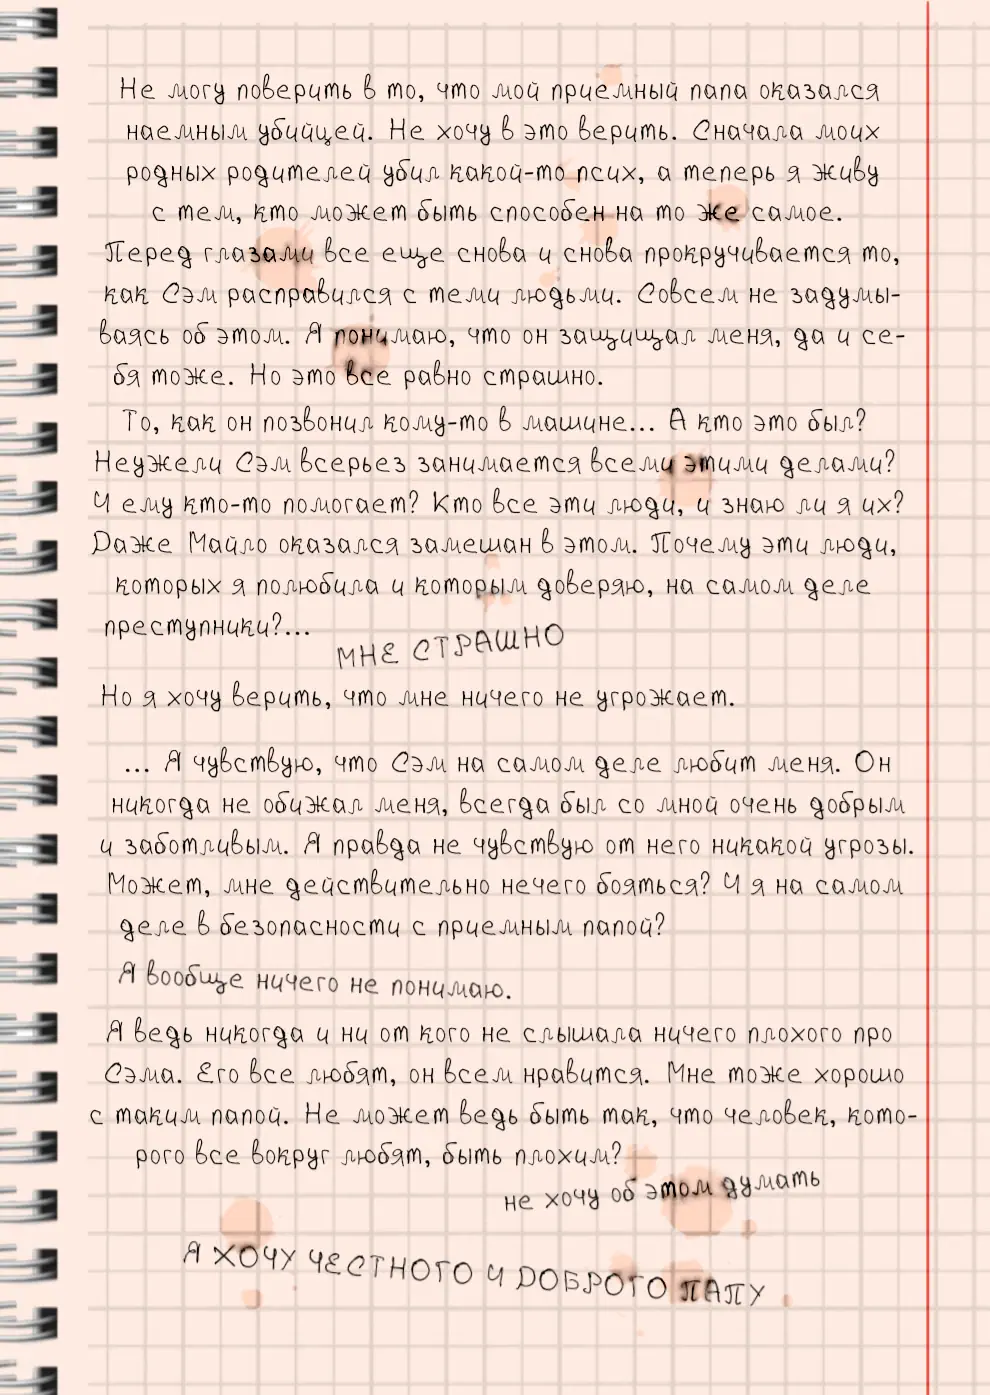 Не могу поверить в то, что мой приемный папа оказался
наемным убийцей. Не хочу в это верить. Сначала моих
родных родителей убил какой-то псих, а теперь я живу
с тем, кто может быть способен на то же самое.
Перед глазами все еще снова и снова прокручивается то,
как Сэм расправился с теми людьми. Совсем не задумы-
ваясь об этом. Я понимаю, что он защищал меня, да и се-
бя тоже. Но это все равно страшно.
То, как он позвонил кому-то в машине... А кто это был?
Неужели Сэм всерьез занимается всеми этими делами?
И ему кто-то помогает? Кто все эти люди, и знаю ли я их?
Даже Майло оказался замешан в этом. Почему эти люди,
которых я полюбила и которым доверяю, на самом деле
преступники?...
МНЕ СТРАШНО
Но я хочу верить, что мне ничего не угрожает.
... Я чувствую, что Сэм на самом деле любит меня. Он
никогда не обижал меня, всегда был со мной очень добрым
и заботливым. Я правда не чувствую от него никакой угрозы.
Может, мне действительно нечего бояться? И я на самом
деле в безопасности с приемным папой?
Я вообще ничего не понимаю.
Я ведь никогда и ни от кого не слышала ничего плохого про
Сэма. Его все любят, он всем нравится. Мне тоже хорошо
с таким папой. Не может ведь быть так, что человек, кото-
рого все вокруг любят, быть плохим?
не хочу об этом думать
Я ХОЧУ ЧЕСТНОГО И ДОБРОГО ПАПУ